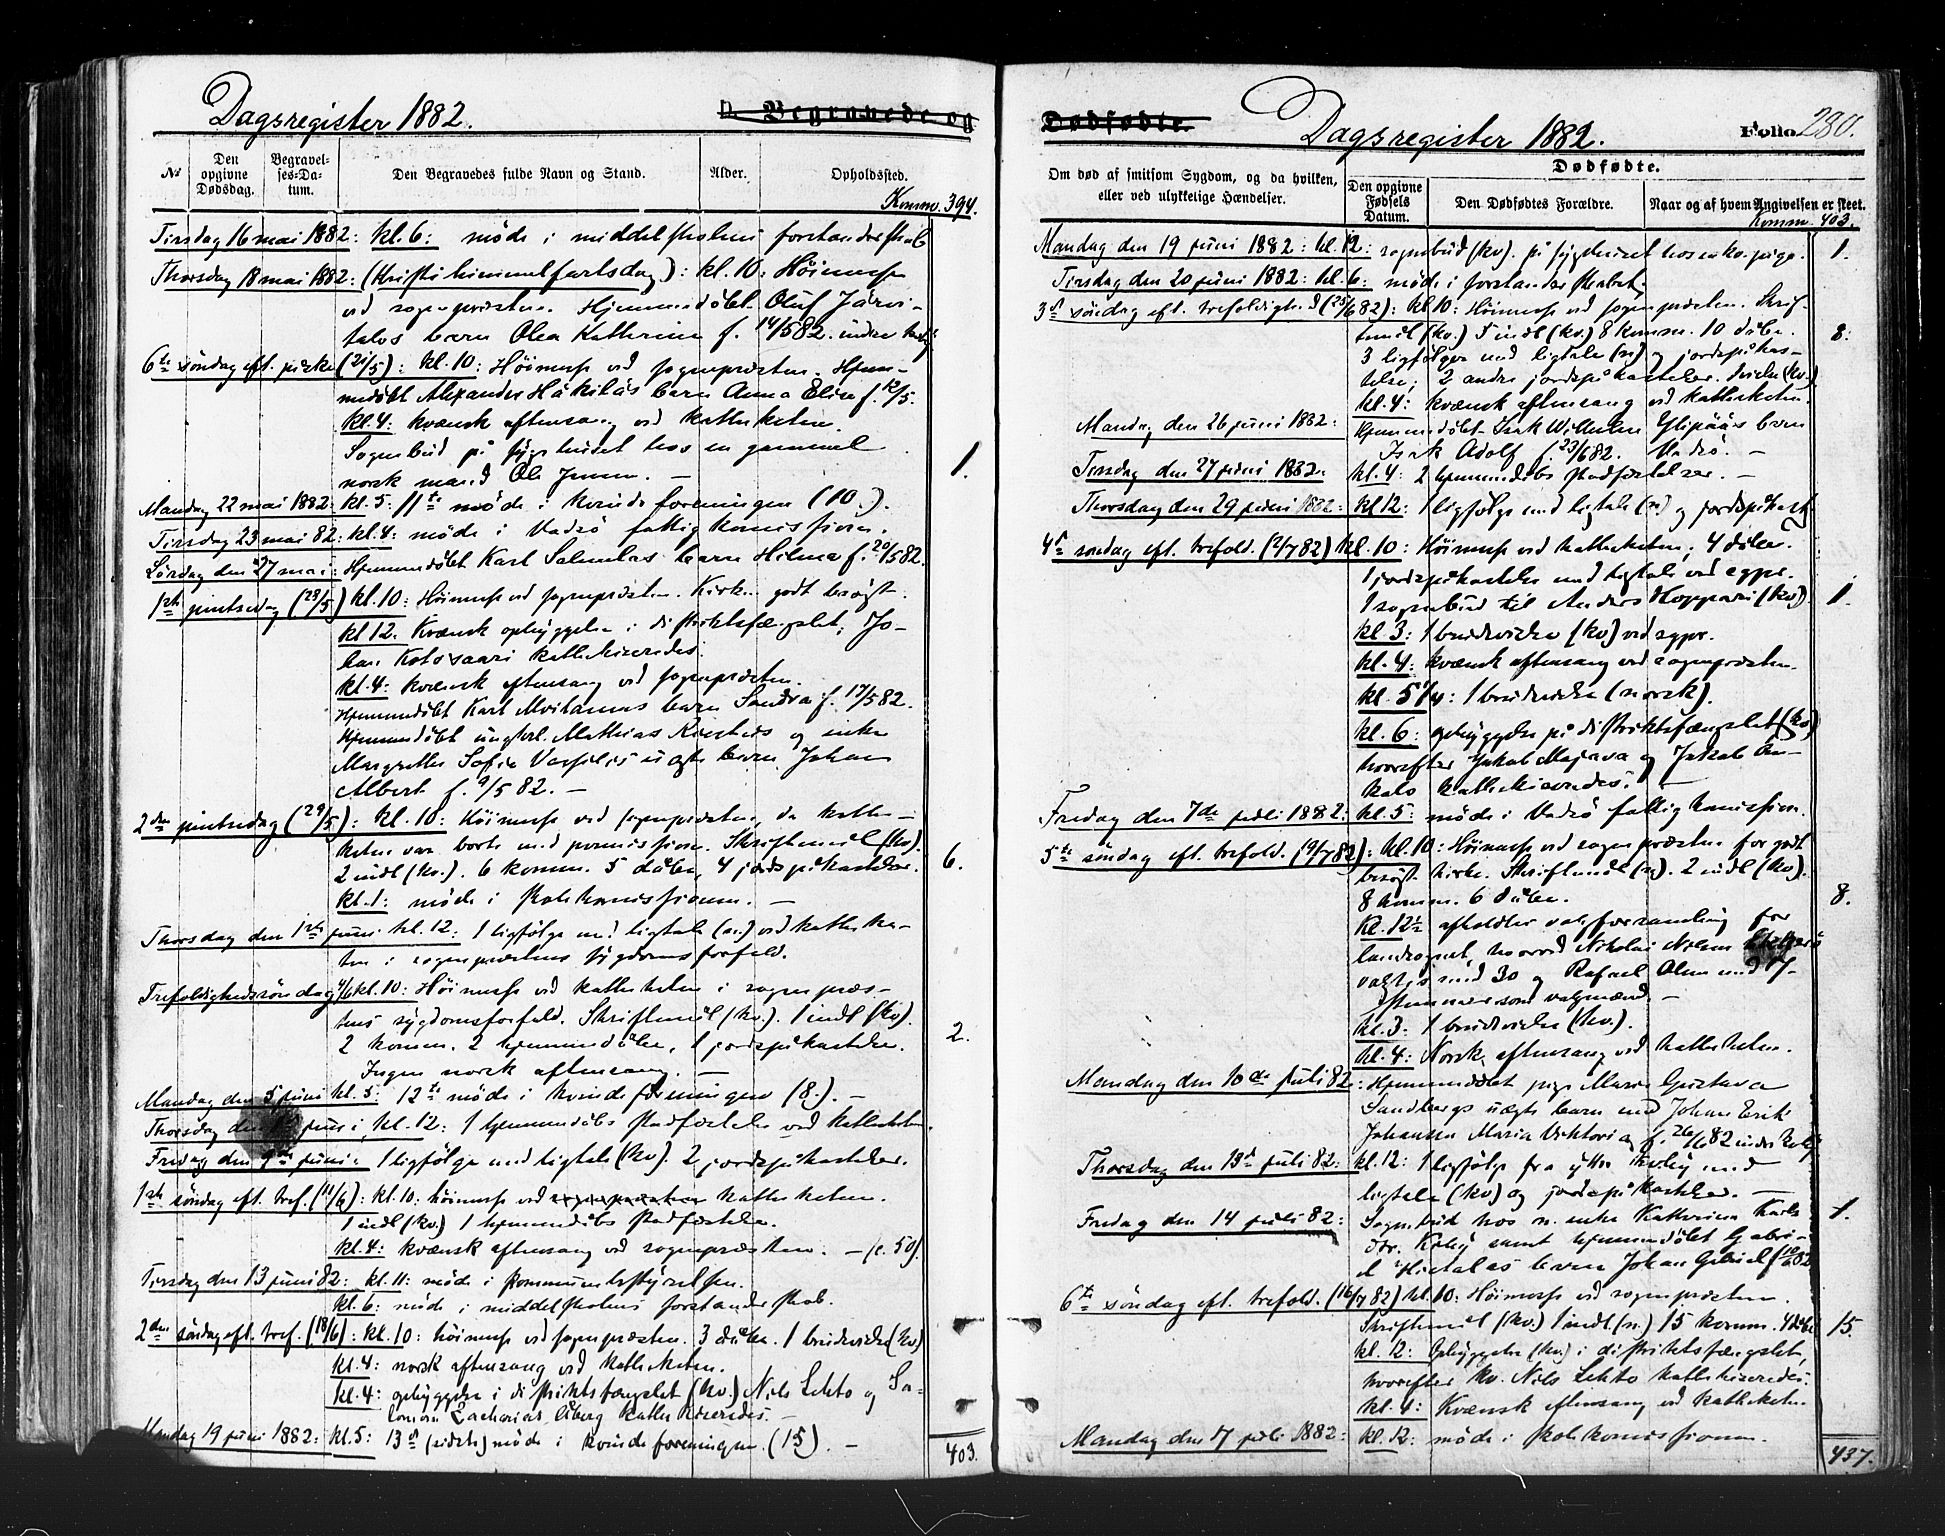 Dagsregister 1882.
D. Begravede og
No
Den opgivne Dødsdag.
Begravel-ses-Da-tum.
Den Begravedes fulde Navn og Stand.
Alder.
Opholdssted.
Komm. 394.
Tirsdag 16 mai 1882: kl. 6: møde i middelskolens forstanderskab
Thorsdag 18 mai 1882: (Kristi himmelfartsdag): kl. 10: Høimesse
ved sognepræsten. Hjemmedøbt Oluf Järvi-
talos barn Olea Katherine f. 14/5 82. indre
6te søndag eft. påske (21/5): kl. 10: Høimesse ved sognepræsten. Hjem-
medøbt Alexander Håkilas barn Anna Elise f. /5.
kl. 4: kvænsk aftensang ved katheketen.
Sognebud på sygehuset hos en gammel
norsk mand Ole Jensen. —
1.
Mandag 22 mai 1882: kl. 5: 11te møde i kvindeforeningen (10.).
Tirsdag 23 mai 82: kl. 4: møde i Vadsø fattigkomission.
Lørdag den 27 mai: Hjemmedøbt Karl Salmelas barn Hilma f. 20/5 82.
1ste pintsedag (28/5) kl. 10: Høimesse ved sognepræsten. Kirken godt besøgt.
kl 12. Kvænsk opbyggelse i distriktsfængslet; Jo-
han Kotosaari katheketiseredes.
kl. 4: kvænsk aftensang ved sognepræsten.
Hjemmedøbt Karl barn Sandra f. 17/5 82.
Hjemmedøbt ungkarl Mathias og enke
Margrethe Sofie uægte barn Johan
Albert f. 9/5 82. —
2den pintsedag (29/5): kl. 10: Høimesse ved sognepræsten, da kathe-
keten var borte med permission. Skriftemål (kv.)
2 indl (kv.). 6 komm. 5 dåbe, 4 jordspåkastelser.
6.
kl. 1: møde i skolekomissionen. —
Thorsdag den 1ste juni kl. 12: 1 ligfølge med ligtale (n.) ved katheke-
ten i sognepræstens sygdomsforfald.
Trefoldighedssøndag 4/6 kl. 10: Høimesse ved katheketen i sognepræs-
tens sygdomsforfald. Skriftemål (kv.). 1 indl (kv).
2 komm. 2 hjemmedåbe, 1 jordspåkastelse.
2.
Ingen norsk aftensang. —
Mandag den 5 juni kl. 5: 12te møde i kvindeforeningen (8.). —
Thorsdag den juni, kl. 12: 1 hjemmedåbs stadfæstelse ved katheketen.
Fredag den 9de juni: 1 ligfølge med ligtale (kv). 2 jordspåkastelser.
1ste søndag eft. tref. (11/6): kl. 10: høimesse ved sognepræsten katheketen.
1 indl (kv.) 1 hjemmedåbs stadfæstelse.
kl. 4: kvænsk aftensang ved sognepræsten. — (c. 50).
Tirsdag den 13 juni 82: kl. 11: møde i kommunebestyrelsen.
kl. 6: møde i middelskolens forstanderskab.
2den søndag eft. tref. (18/6): kl. 10: høimesse ved sognepræsten. 3 dåbe. 1 brudevielse (kv)
kl. 4: norsk aftensang ved katheketen.
kl. 4: opbyggelse i distriktsfængslet (kv.) Nils Lehto og Sa-
lomon Zacharias Åberg katheketiseredes. —
Mandag 19 juni 1882: kl. 5: 13de (sidste) møde i kvindeforeningen. (15). —
403.
Dødfødte.
Dagsregister 1882.
Folio 280.
Om død af smitsom Sygdom, og da hvilken, eller ved ulykkelige Hændelser.
Dødfødte.
Den opgivne Fødsels Datum.
Den Dødfødtes Forældre.
Naar og af hvem Angivelsen er skeet.
Komm. 403.
Mandag den 19 juni 1882: kl. 12: sognebud (kv). på sygehuset hos en kv. pige.
1.
Tirsdag den 20 juni 1882: kl. 6: møde i forstanderskabet.
3die søndag eft. trefoldigh. (25/6 82): kl 10: Høimesse ved sognepræsten. Skrif-
temål (kv.) 5 indl (kv) 8 komm. 10 dåbe.
8.
3 ligfølger med ligtale (n) og jordspåkas-
telse; 2 andre jordspåkastelser. (kv.)
kl. 4: kvænsk aftensang ved katheketen.
Mandag den 26 juni 1882:
hjemmedøbt Isak Wilhelm Ylipääs barn
Isak Adolf f. 23/6 82. Vadsø. —
Tirsdag den 27 juni 1882:
kl. 4: 2 hjemmedåbs stadfæstelser. —
Thorsdag den 29 juni 1882: kl 12: 1 ligfølge med ligtale (n) og jordspåkast.
4de søndag eft. trefold. (2/7 82) kl. 10: Høimesse ved katheketen; 4 dåber.
1 jordspåkastelse med ligtale ved sgpr.
1 sognebud til Anders Hoppari (kv)
1.
kl. 3: 1 brudevielse (kv) ved sgpr.
kl. 4: kvænsk aftensang ved sognepræsten.
kl. 5 1/4: 1 brudevielse (norsk).
kl. 6: opbyggelse på distriktsfængslet (kv)
hvorefter Jakob Majava og Jakob
kalo katheketiseredes.
Fredag den 7de juli 1882: kl. 5: møde i Vadsø fattigkomission.
5te søndag eft. trefold. (9/7 82): kl. 10: Høimesse ved sognepræsten for godt
besøgt kirke. Skriftemål (n). 2 indl (kv).
8 komm. 6 dåbe.
8.
Kl. 12½ afholdtes valgforsamling for
landsognet, hvorved Nikolai Nilsen
valgtes med 30 og Rafael Olsen med 17
stemmer som valgmænd. —
kl. 3: 1 brudevielse (kv.).
kl. 4: Norsk aftensang ved katheketen.
Mandag den 10de juli 82: Hjemmedøbt pige Maria Gustava
Sandbergs uægte barn med Johan Erik
Johansen Maria Viktoria f. 26/6 82 indre Kiby
Thorsdag den 13de juli 82: kl. 12: 1 ligfølge fra ytre Kiby med
ligtale (kv) og jordspåkastelse. —
Fredag den 14 juli 82:
Sognebud hos n. enke Katharina Karls
dtr. Kiby samt hjemmedøbt Gabri-
el Hietalas barn Johan Gabriel f. /6 82
1.
6te søndag eft. trefold. (16/7 82) kl. 10: Høimesse ved sognepræsten.
Skriftemål (kv.) 1 indl. (n.) 15 komm. 4 dåbe
15.
kl. 12: Opbyggelse (kv.) i distriktsfængslet,
hvorefter kv. Nils Lehto katheketiseredes.
kl. 4: Kvænsk aftensang ved katheketen
Mandag den 17 juli 1882: kl. 12: møde i skolekomissionen.
437.